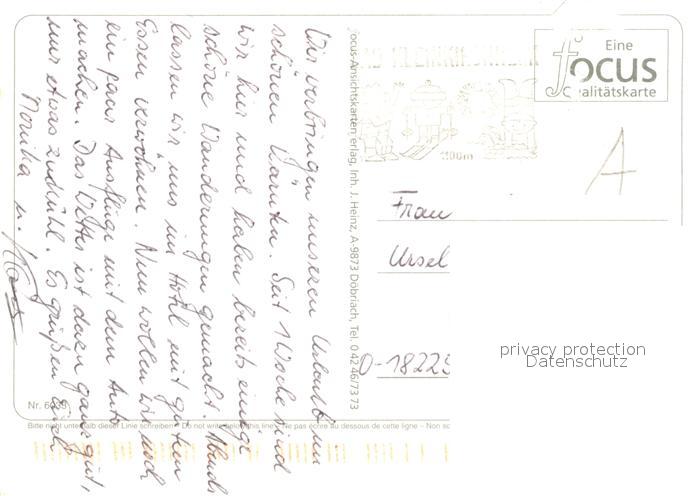 Wir verbringen unseren Urlaub im
schönen Kärnten. Seit 1 Woche sind
wir hier und haben bereits einige
schöne Wanderungen gemacht. Abends
lassen wir uns im Hotel mit gutem
Essen verwöhnen. Nun wollen wir noch
ein paar Ausflüge mit dem Auto
machen. Das Wetter ist dazu ganz gut,
nur etwas zu kühl. Es grüßen Euch
Monika u.
Focus-Ansichtskarten erlag, Inh. J. Heinz, A-9873 Döbriach, Tel. 0 42 46/73 73
Eine
focus
ualitätskarte
1100m
A
Frau
Ursel
D-18225
privacy protection
Datenschutz
Nr.
Bitte nicht unterhalb dieser Linie schreiben – Do not write below this line – Ne pas écrire au dessous de cette ligne – Non sc